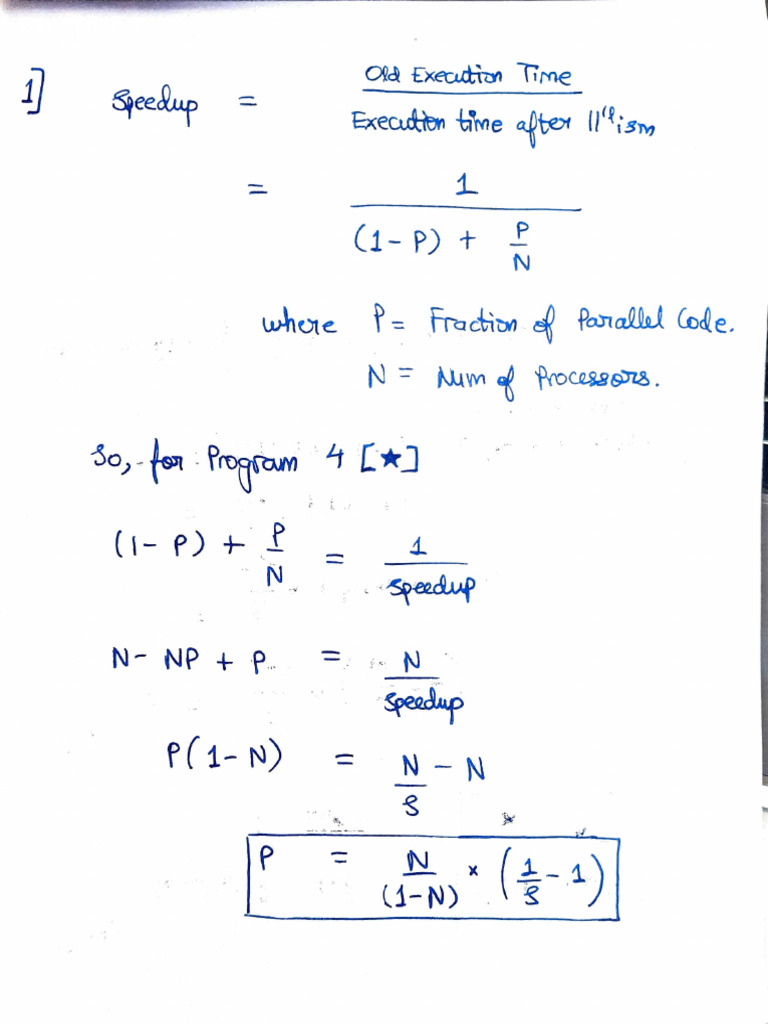 1] Speedup = Old Execution Time / Execution time after ||'el ism
= 1 / (1 - P) + P/N
where P = Fraction of Parallel Code.
N = Num of Processors.
So, for Program 4 [★]
(1 - P) + P/N = 1/Speedup
N - NP + P = N/Speedup
P(1 - N) = N/S - N
P = N/(1-N) × (1/S - 1)